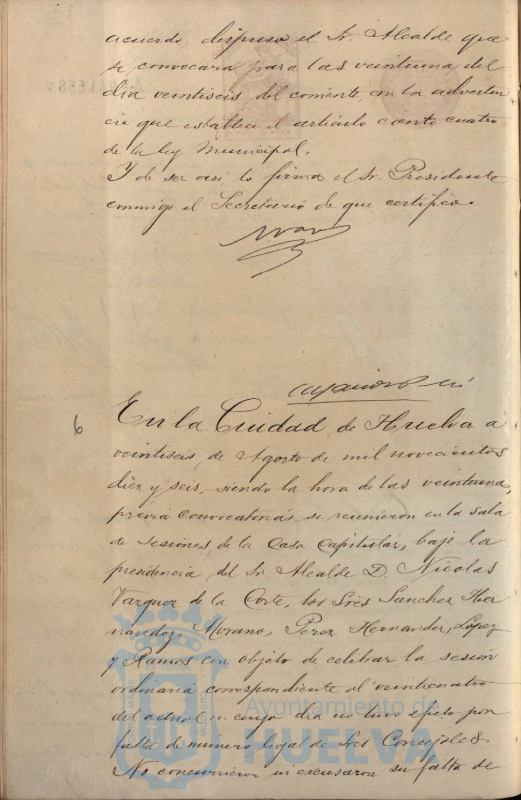 acuerdo, dispuso el Sr. Alcalde que
se convocara para las veintiuna del
dia veintiseis del corriente, con la adverten
cia que establece el articulo ciento cuatro
de la ley Municipal.
Y de ser asi lo firma el Sr. Presidente
conmigo el Secretario de que certifico.
6
En la Ciudad de Huelva á
veintiseis de Agosto de mil novecientos
diez y seis, siendo la hora de las veintiuna,
previa convocatoria, se reunieron en la sala
de sesiones de la Casa Capitular, bajo la
presidencia del Sr. Alcalde D. Nicolas
Vazquez de la Corte, los Sres Sanchez Her
nandez, Morano, Perez Hernandez, López
y Ramos con objeto de celebrar la sesion
ordinaria correspondiente al veinticuatro
del actual en cuyo dia no tuvo efecto por
falta de numero legal de Sres Concejales.
No concurrieron ni excusaron su falta de
Ayuntamiento de
HUELVA